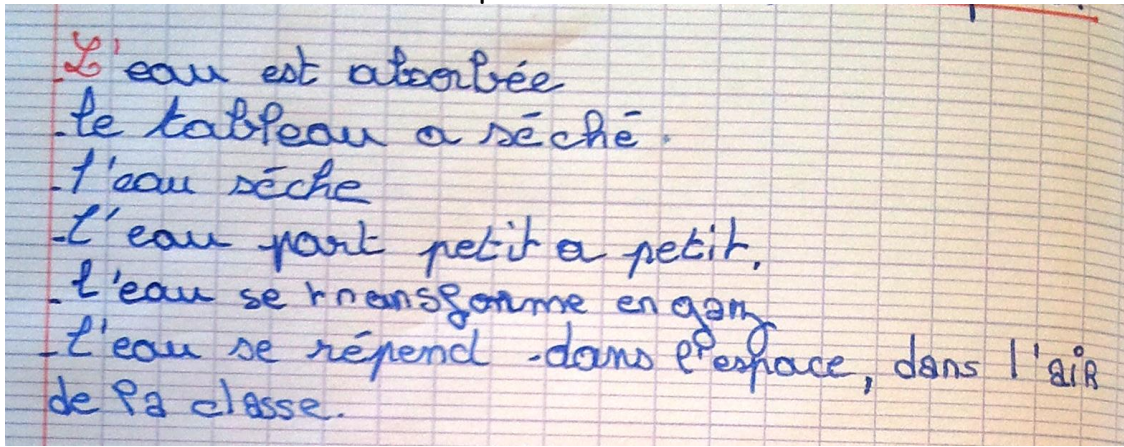 L'eau est absorbée
-le tableau a séché.
-l'eau sèche
-L'eau part petit a petit.
-l'eau se transforme en gaz
-l'eau se répend -dans l'espace, dans l'aiR
de la classe.